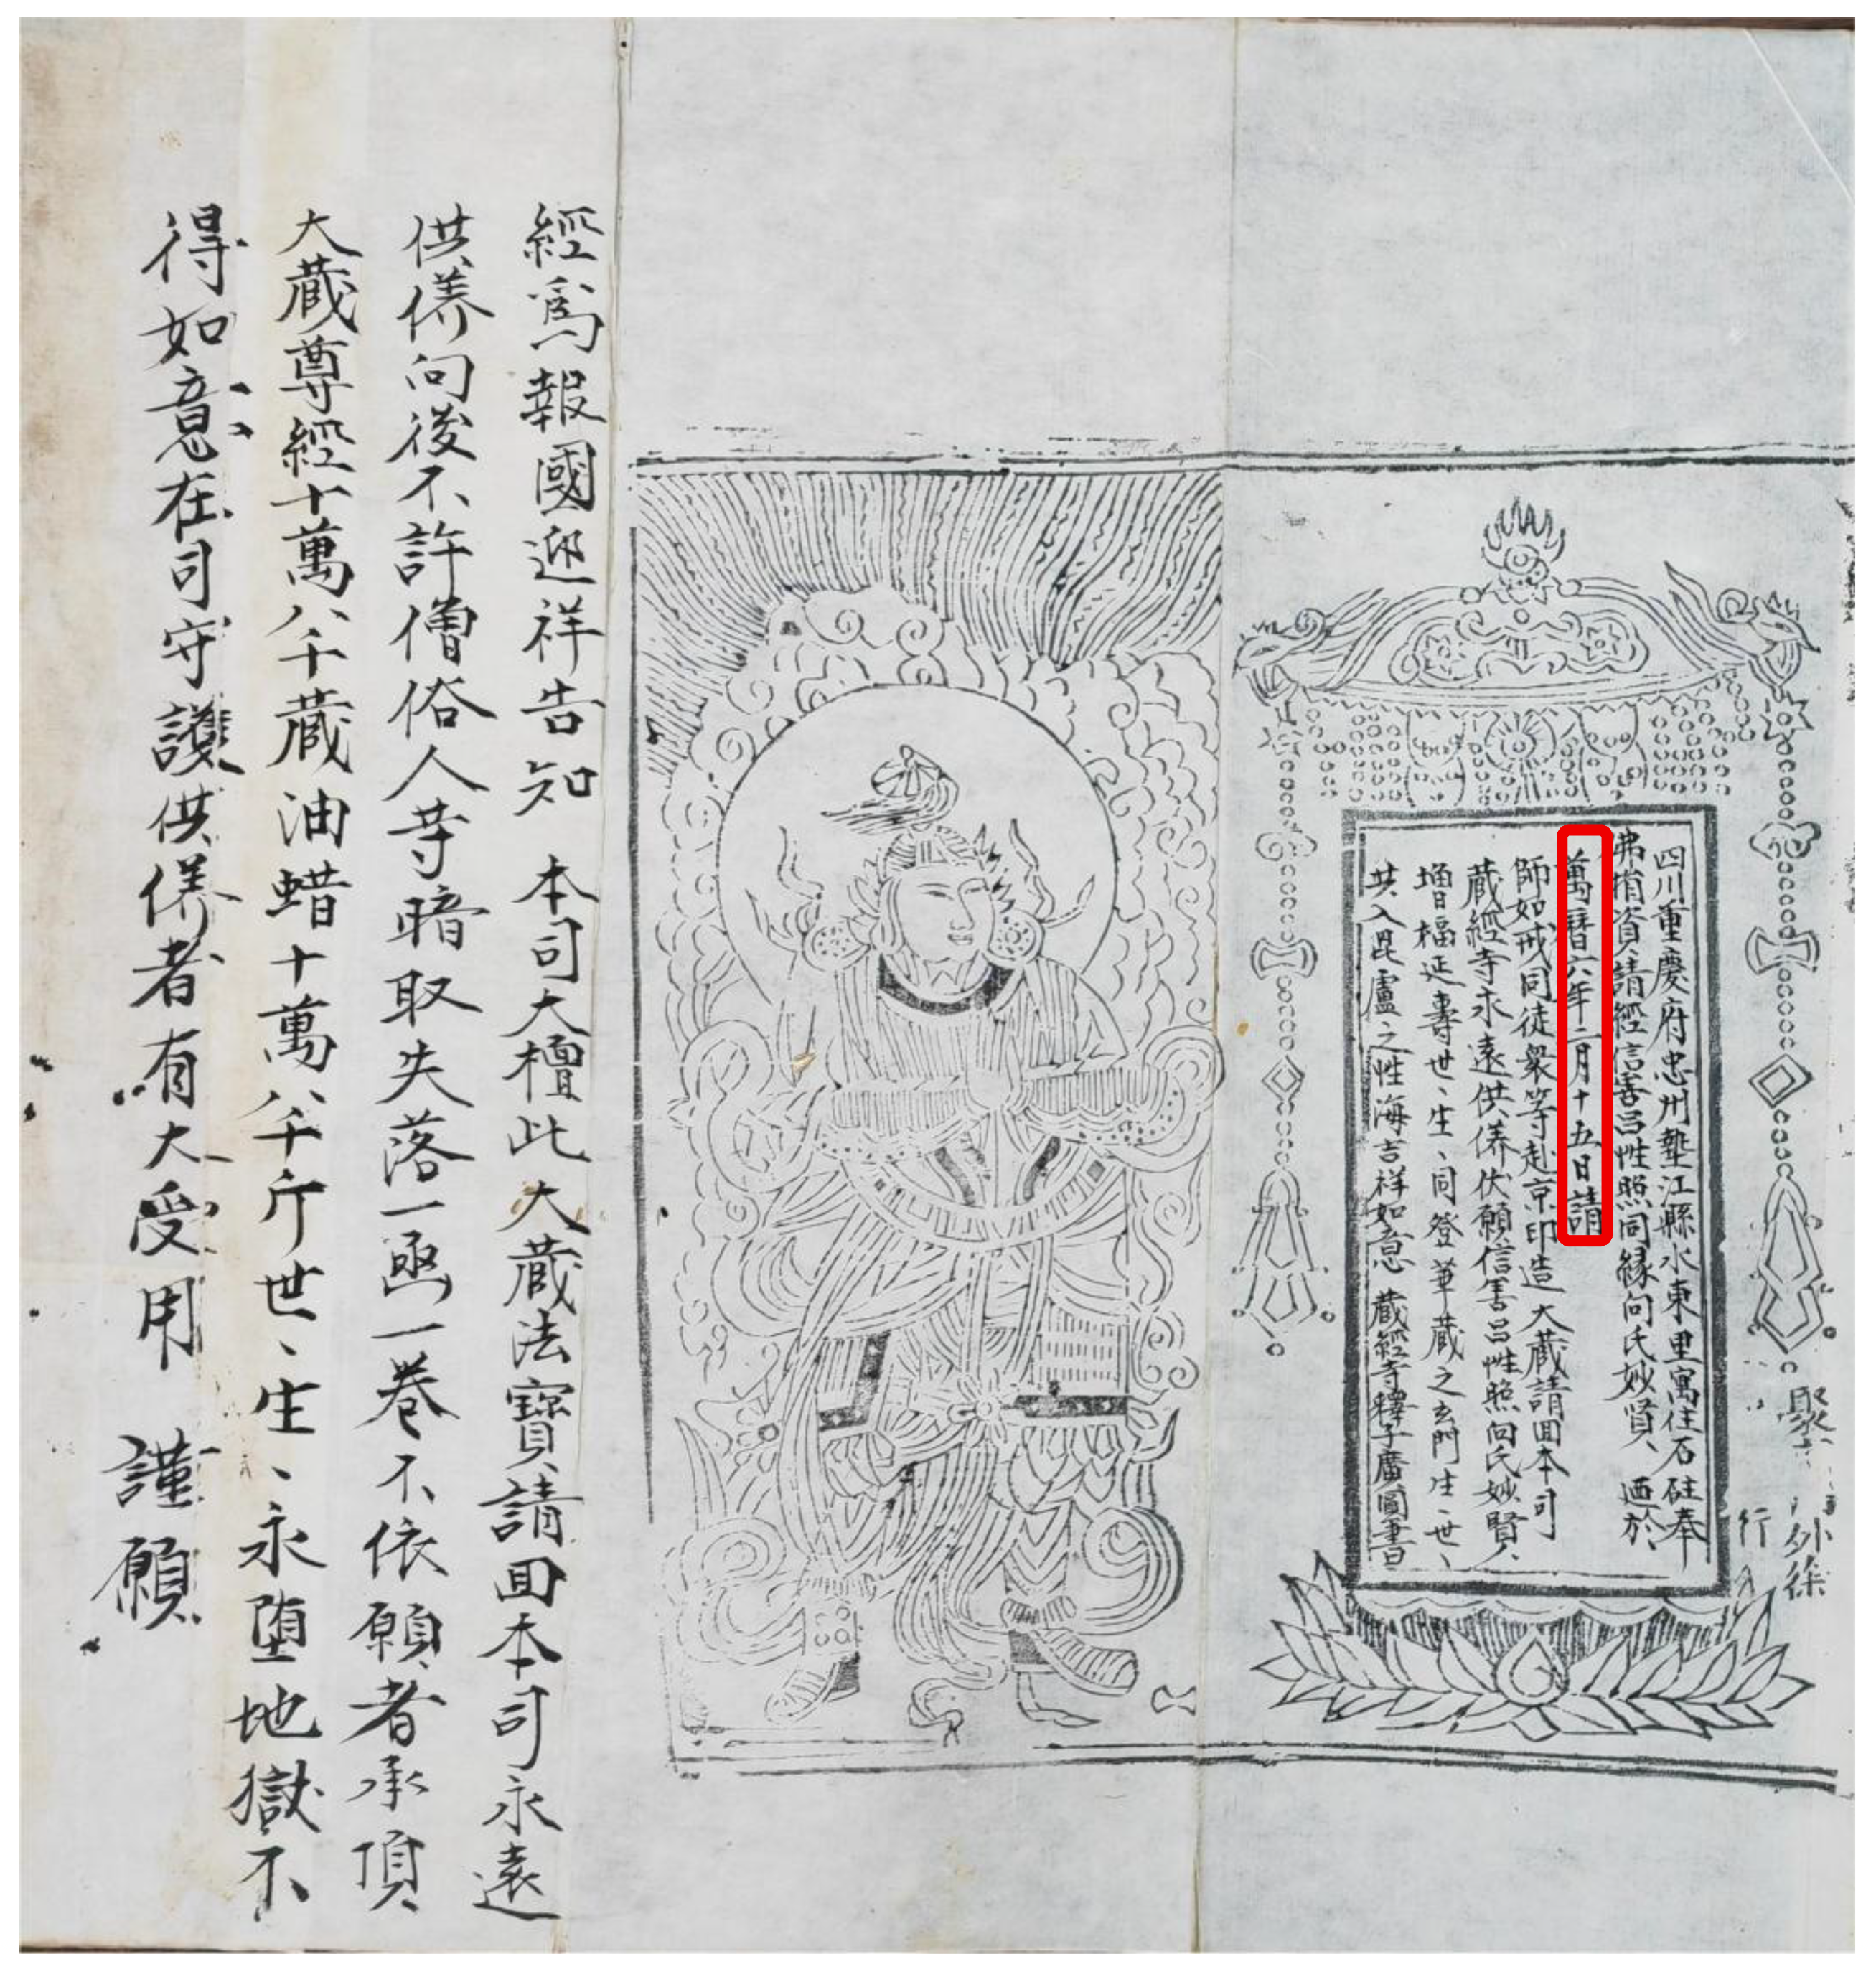 四川重慶府忠州墊江縣水東里寓住石砫奉
弗捎資請經信善呂性照同緣向氏妙賢、 迺於
萬曆六年二月十五日請
師如戒同徒衆等赴京印造大藏請囬本司
藏經寺永遠供養伏願信善呂性照向氏妙賢、
增福延壽世、生、同登華藏之玄門生、世、
共入毘盧之性海吉祥如意 藏經寺釋子廣圓書
經爲報國迎祥告知 本司大檀此大藏法寶請囬本司永遠
供養向後不許僧俗人䓁暗取失落一凾一巻不依願者承頂
大藏尊經十萬八千藏油蜡十萬八千斤世、生、永堕地獄不
得如意在司守護供養者有大受用 謹願